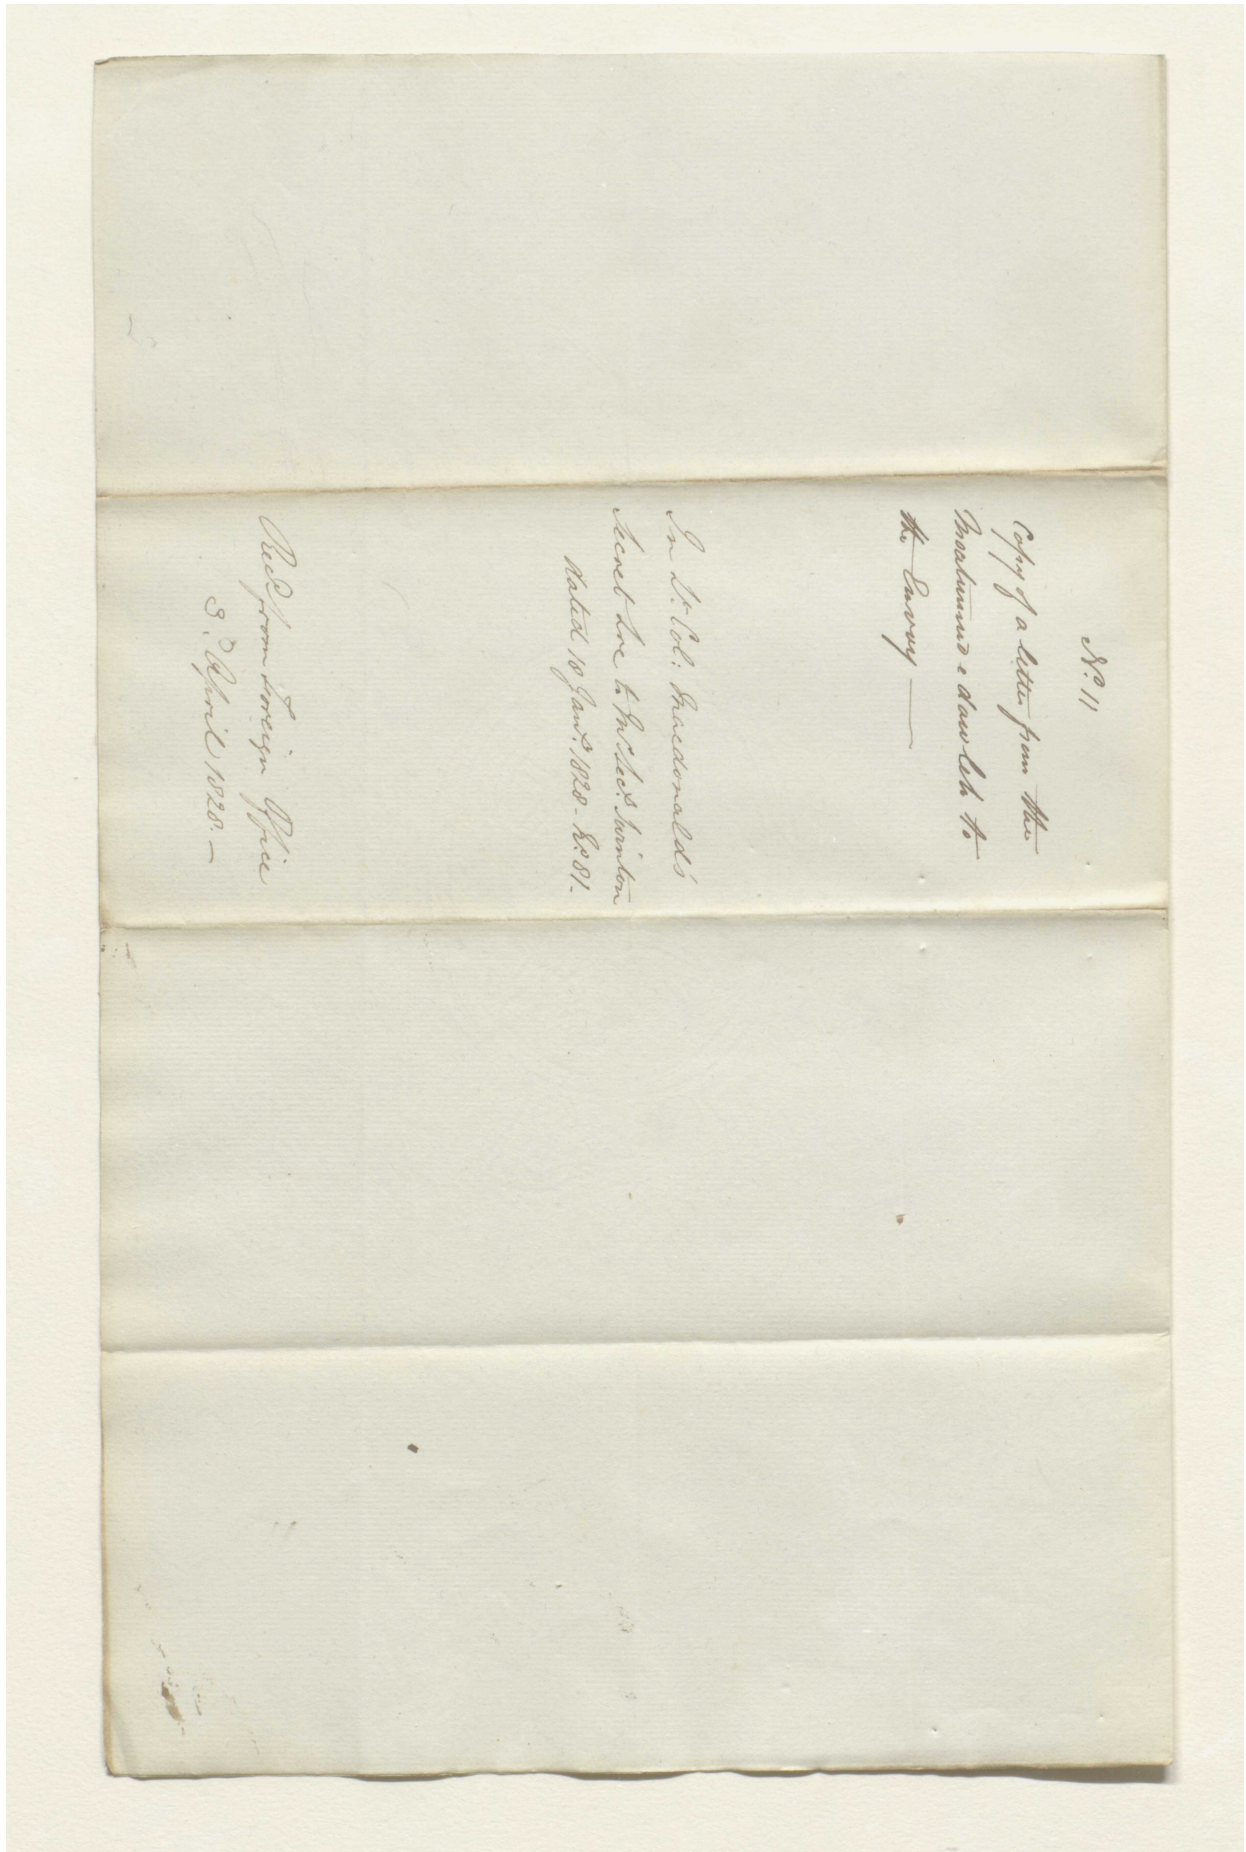 No. 11
Copy of a letter from the
Moatumud e dowleh to
the Envoy —
In Lt. Col: Macdonald's
Secret Lre to Mr Secy Swinton
dated 18 Jany. 1828 - No. 81 -
Recd. from Foreign Office
3.D April 1828. -